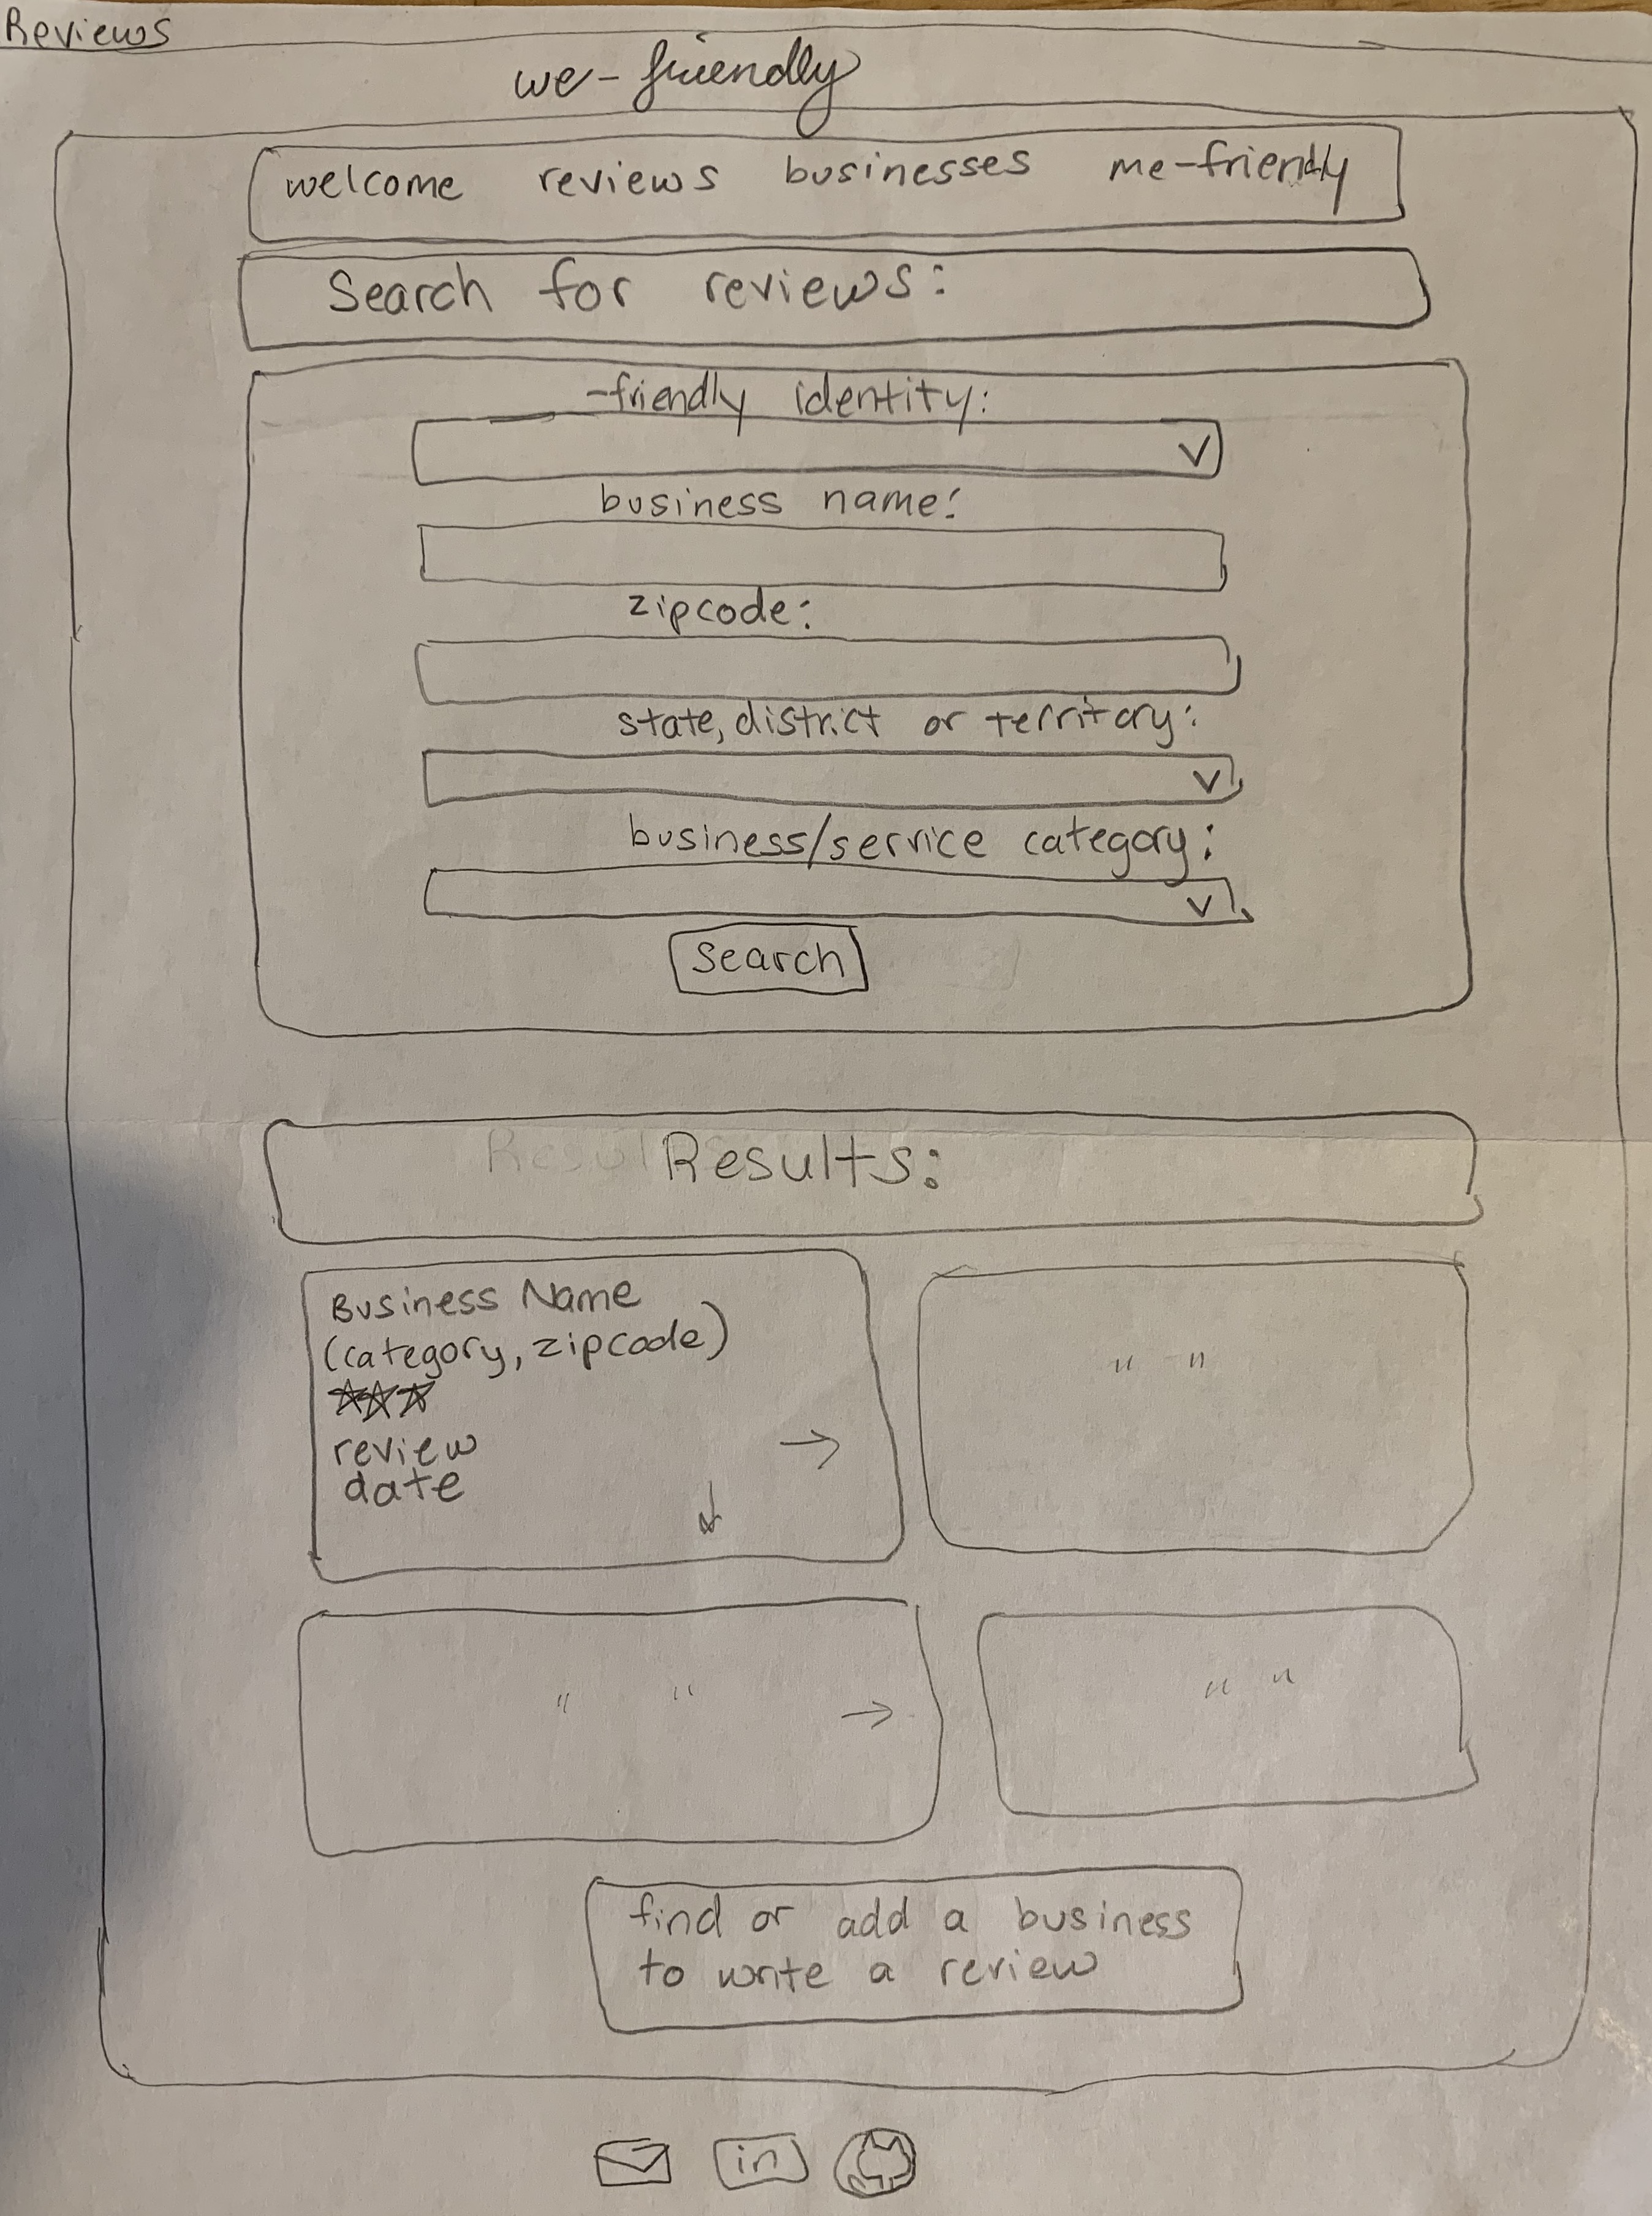 Reviews
we-friendly
welcome reviews businesses me-friendly
Search for reviews:
-friendly identity:
business name:
zipcode:
state, district or territory:
business/service category:
search
Results:
Business Name
(category, zipcode)
review
date
" "
" "
" "
find or add a business
to write a review
in